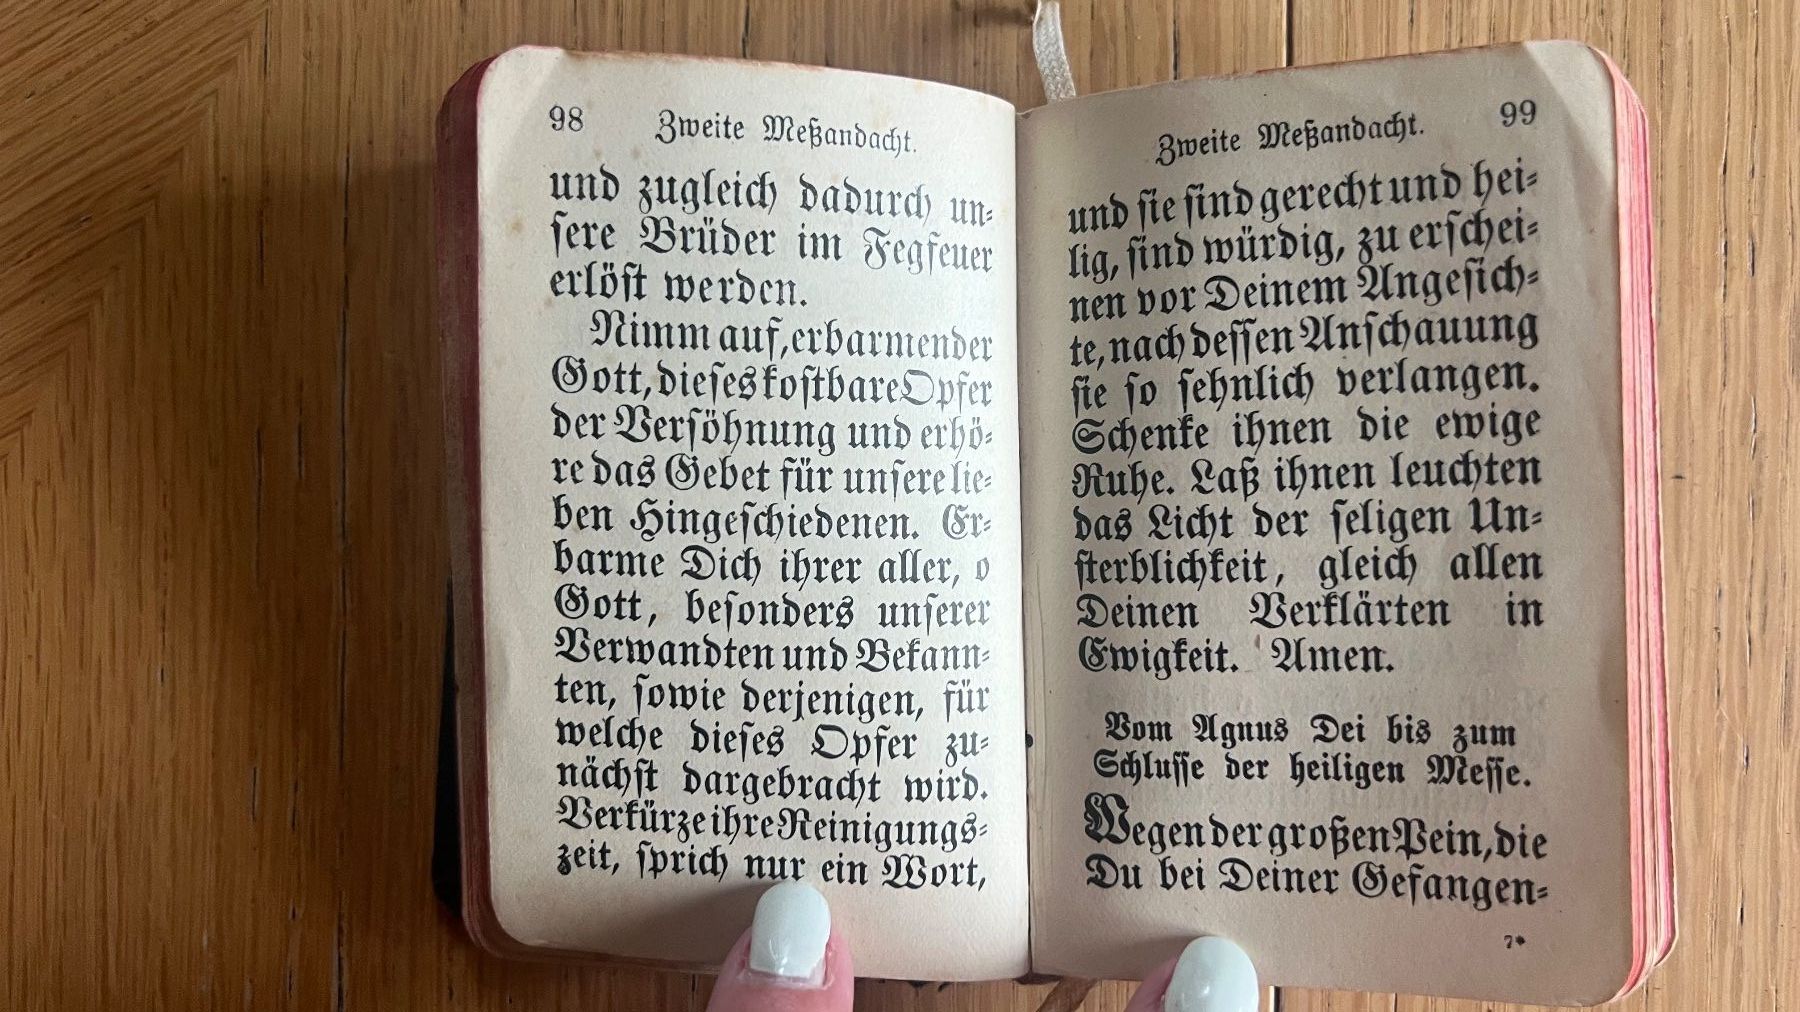 98 Zweite Meßandacht.
und zugleich dadurch un-
sere Brüder im Fegfeuer
erlöst werden.
Nimm auf, erbarmender
Gott, dieses kostbare Opfer
der Versöhnung und erhö-
re das Gebet für unsere lie-
ben Hingeschiedenen. Er-
barme Dich ihrer aller, o
Gott, besonders unserer
Verwandten und Bekann-
ten, sowie derjenigen, für
welche dieses Opfer zu-
nächst dargebracht wird.
Verkürze ihre Reinigungs-
zeit, sprich nur ein Wort,
Zweite Meßandacht. 99
und sie sind gerecht und hei-
lig, sind würdig, zu erschei-
nen vor Deinem Angesich-
te, nach dessen Anschauung
sie so sehnlich verlangen.
Schenke ihnen die ewige
Ruhe. Laß ihnen leuchten
das Licht der seligen Un-
sterblichkeit, gleich allen
Deinen Verklärten in
Ewigkeit. Amen.
Vom Agnus Dei bis zum
Schlusse der heiligen Messe.
Wegen der großen Pein, die
Du bei Deiner Gefangen-
7*